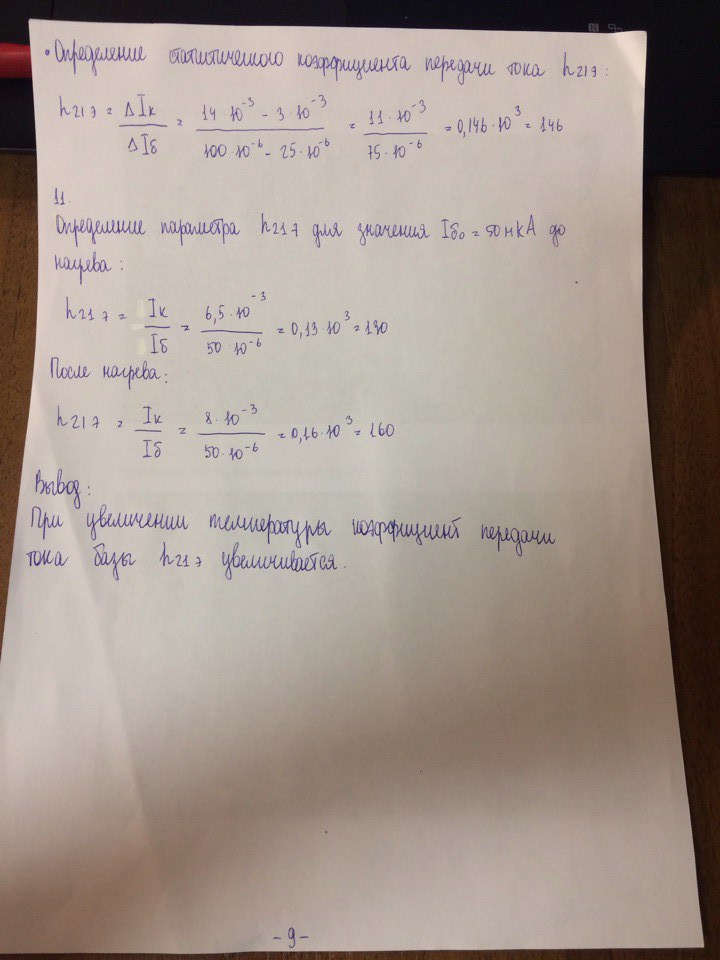 • Определение статистического коэффициента передачи тока h21э:
h21э = ΔIк / ΔIб = (14·10^-3 - 3·10^-3) / (100·10^-6 - 25·10^-6) = 11·10^-3 / 75·10^-6 = 0,146·10^3 = 146
11.
Определение параметра h21э для значения Iб0 = 50 мкА до
нагрева:
h21э = Iк / Iб = 6,5·10^-3 / 50·10^-6 = 0,13·10^3 = 130
После нагрева:
h21э = Iк / Iб = 8·10^-3 / 50·10^-6 = 0,16·10^3 = 160
Вывод:
При увеличении температуры коэффициент передачи
тока базы h21э увеличивается.
- 9 -